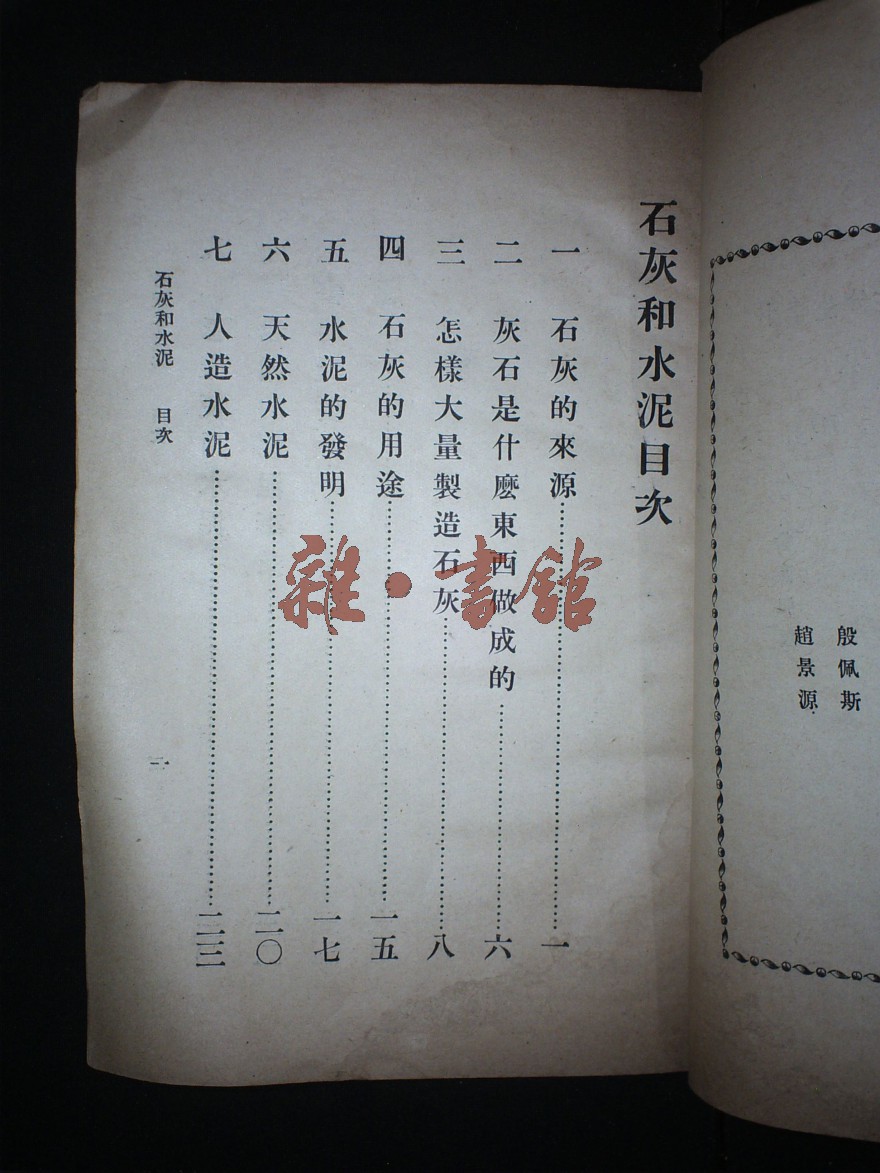 殷佩斯
趙景源
石灰和水泥目次
一 石灰的來源……一
二 灰石是什麽東西做成的……六
三 怎樣大量製造石灰……八
四 石灰的用途……一五
五 水泥的發明……一七
六 天然水泥……二〇
七 人造水泥……二三
石灰和水泥 目次
一
雜·書館